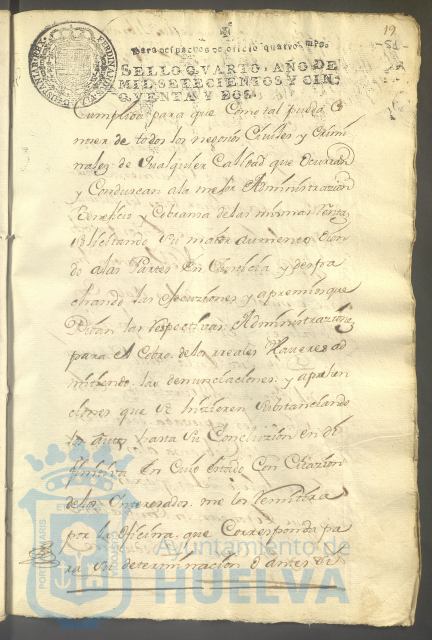 19
Para despachos de oficio quatro mrs.
SELLO QVARTO, AÑO DE
MIL SETECIENTOS Y CIN-
QVENTA Y DOS.
Cumplida para que como tal pueda Co
nocer de todos los negocios Civiles y Crimi
nales de qualquier Calidad que ocurran
y Conduzcan ala mejor Administrazion
Beneficio y Cobranza de las mismas Rentas
solicitando su maior aumento oien
do a las Partes en Justicia y despa
chando las execuziones y apremios que
Pidan las respectivas Administraziones
para el Cobro de los reales Haveres ad
mitiendo las denunciaciones y aprehen
ciones que se hizieren substanciando
los autos hasta su Conclusion en di
finitiva en cuio estado Con Citazion
de los Interesados me los remitira
por la oficina que Corresponda pa
ra su determinazion o antes de
Ayuntamiento de
HUELVA